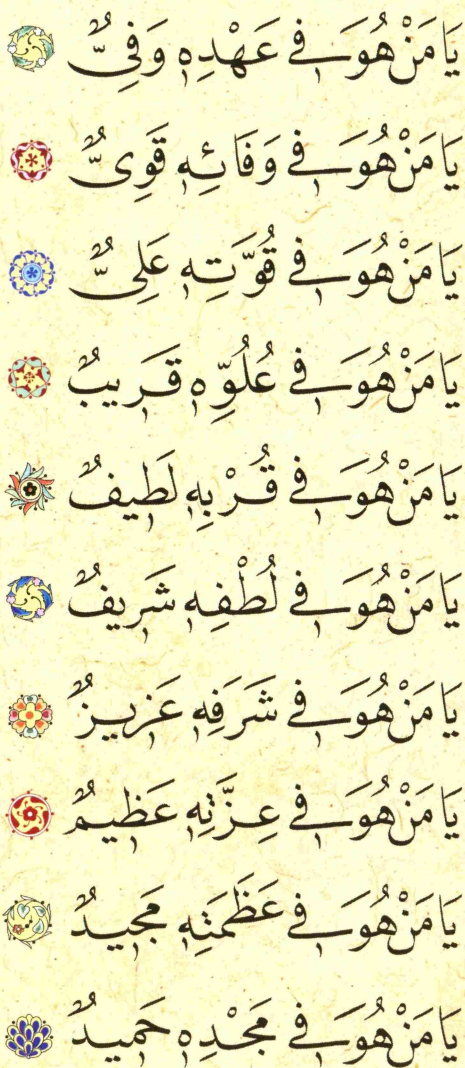 يَا مَنْ هُوَ فٖي عَهْدِهٖ وَفِىٌّ
يَا مَنْ هُوَ فٖي وَفَائِهٖ قَوِىٌّ
يَا مَنْ هُوَ فٖي قُوَّتِهٖ عَلِىٌّ
يَا مَنْ هُوَ فٖي عُلُوِّهٖ قَرٖيبٌ
يَا مَنْ هُوَ فٖي قُرْبِهٖ لَطٖيفٌ
يَا مَنْ هُوَ فٖي لُطْفِهٖ شَرٖيفٌ
يَا مَنْ هُوَ فٖي شَرَفِهٖ عَزٖيزٌ
يَا مَنْ هُوَ فٖي عِزَّتِهٖ عَظٖيمٌ
يَا مَنْ هُوَ فٖي عَظَمَتِهٖ مَجٖيدٌ
يَا مَنْ هُوَ فٖي مَجْدِهٖ حَمٖيدٌ